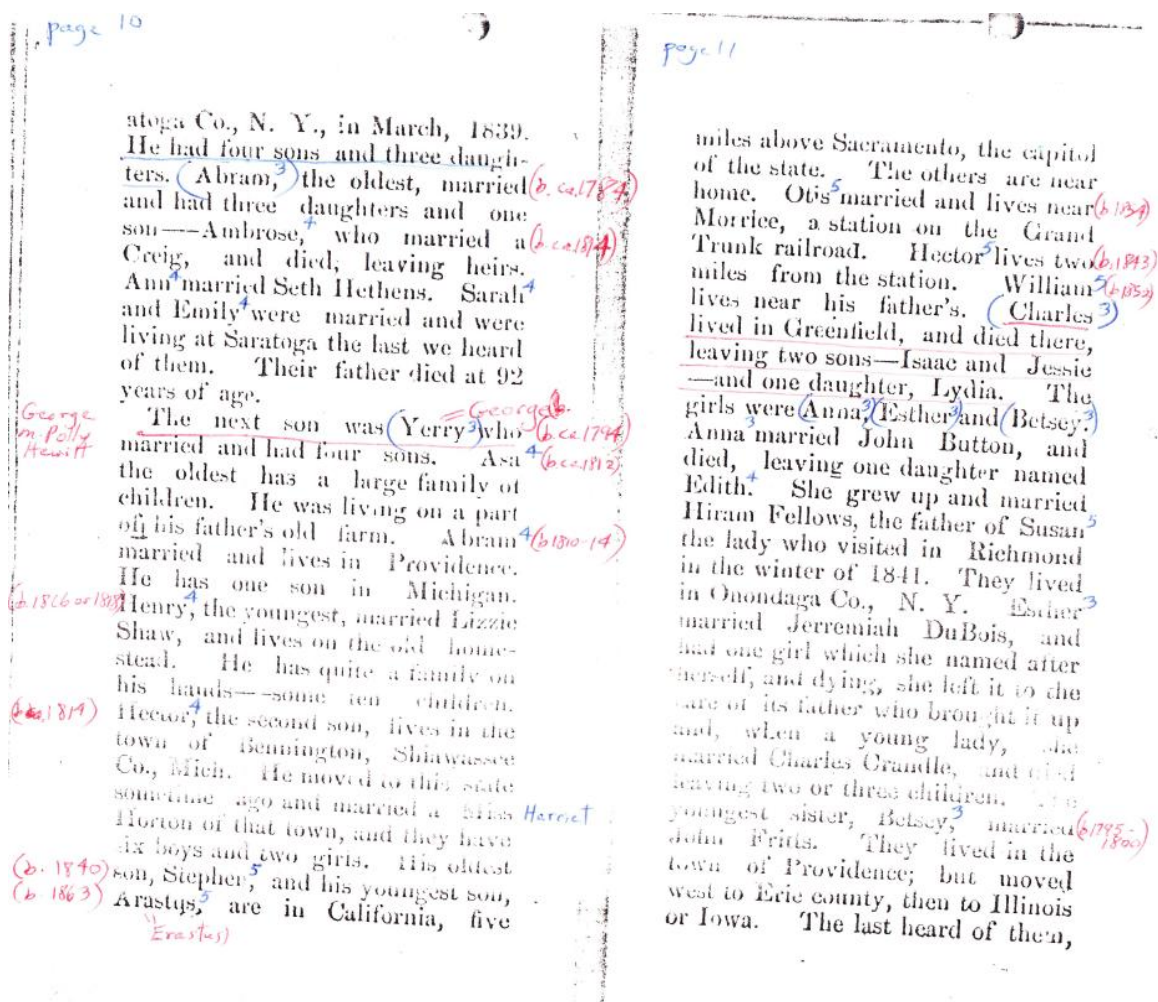 page 10
atoga Co., N. Y., in March, 1839.
He had four sons and three daugh-
ters. (Abram,3) the oldest, married (b. ca. 1784)
and had three daughters and one
son—-Ambrose,4 who married a (b. ca. 1814)
Creig, and died, leaving heirs.
Ann4 married Seth Hethens. Sarah4
and Emily4 were married and were
living at Saratoga the last we heard
of them. Their father died at 92
years of age.
= George
George m. Polly Hewitt
The next son was (Yerry3) who (b. ca. 1794)
married and had four sons. Asa4 (b. ca. 1812)
the oldest has a large family of
children. He was living on a part
of his father's old farm. Abram4 (b 1810-14)
married and lives in Providence.
He has one son in Michigan.
Henry,4 the youngest, married Lizzie
Shaw, and lives on the old home-
stead. He has quite a family on
his hands—-some ten children.
(1819) Hector,4 the second son, lives in the
town of Bennington, Shiawassee
Co., Mich. He moved to this state
sometime ago and married a Miss Harriet
Horton of that town, and they have
six boys and two girls. His oldest
(b. 1840) son, Stephen,5 and his youngest son,
(b 1863) Arastus,5 are in California, five
"Erastus)
page 11
miles above Sacramento, the capitol
of the state. The others are near
home. Otis5 married and lives near (b. 1834)
Morrice, a station on the Grand
Trunk railroad. Hector5 lives two (b. 1843)
miles from the station. William5 (b 1852)
lives near his father's. (Charles3)
lived in Greenfield, and died there,
leaving two sons—Isaac and Jessie
—and one daughter, Lydia. The
girls were (Anna,3) (Esther3) and (Betsey.3)
Anna3 married John Button, and
died, leaving one daughter named
Edith.4 She grew up and married
Hiram Fellows, the father of Susan5
the lady who visited in Richmond
in the winter of 1841. They lived
in Onondaga Co., N. Y. Esther3
married Jerremiah DuBois, and
had one girl which she named after
herself, and dying, she left it to the
care of its father who brought it up
and, when a young lady, she
married Charles Crandle, and died
leaving two or three children. The
youngest sister, Betsey,3 married (b 1795-1800)
John Fritts. They lived in the
town of Providence; but moved
west to Erie county, then to Illinois
or Iowa. The last heard of them,